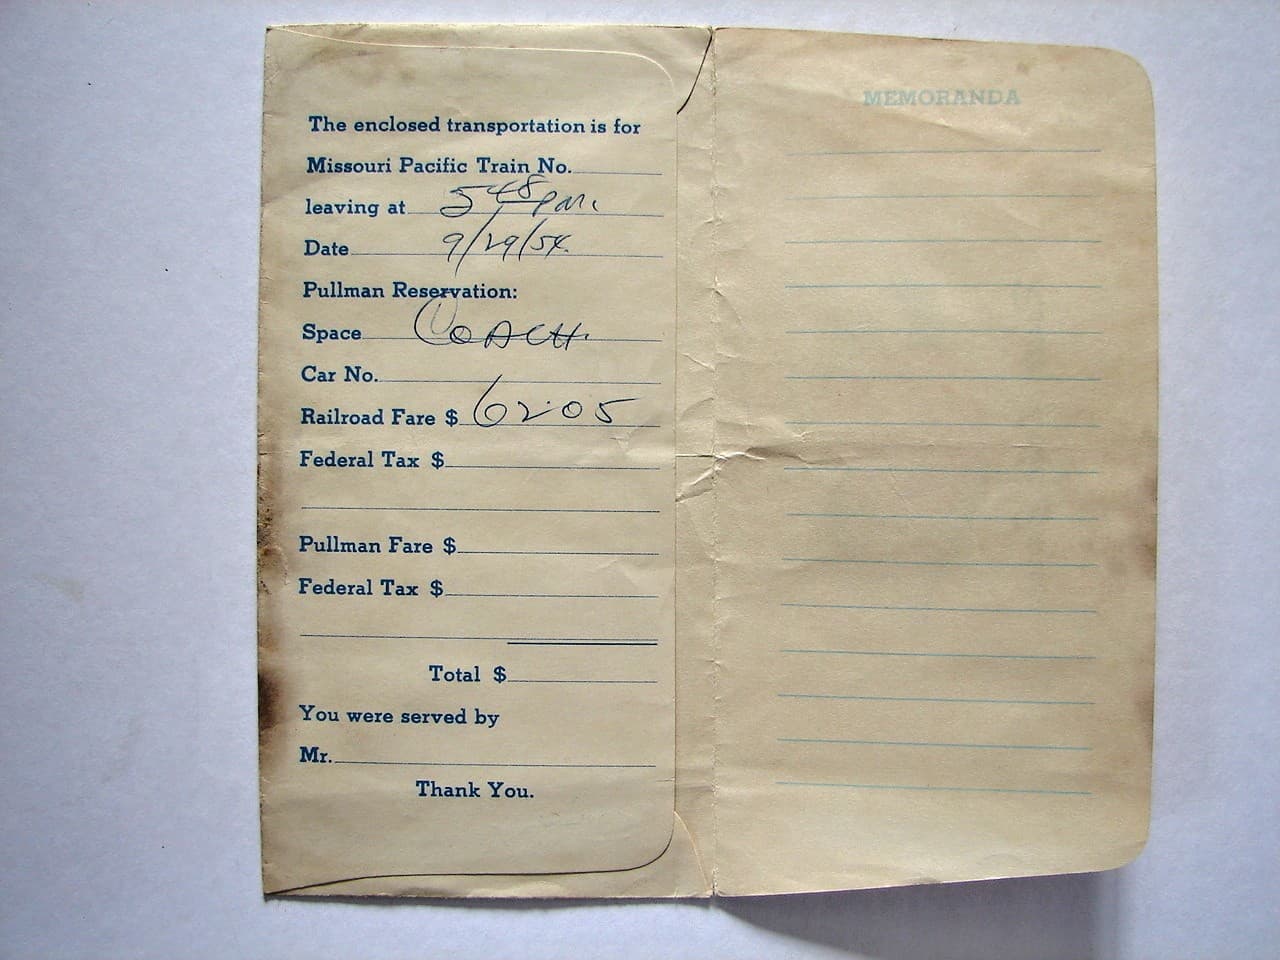 The enclosed transportation is for
Missouri Pacific Train No.
leaving at 5 48 PM.
Date 9/29/54
Pullman Reservation:
Space COACH.
Car No.
Railroad Fare $ 62 05
Federal Tax $
Pullman Fare $
Federal Tax $
Total $
You were served by
Mr.
Thank You.
MEMORANDA